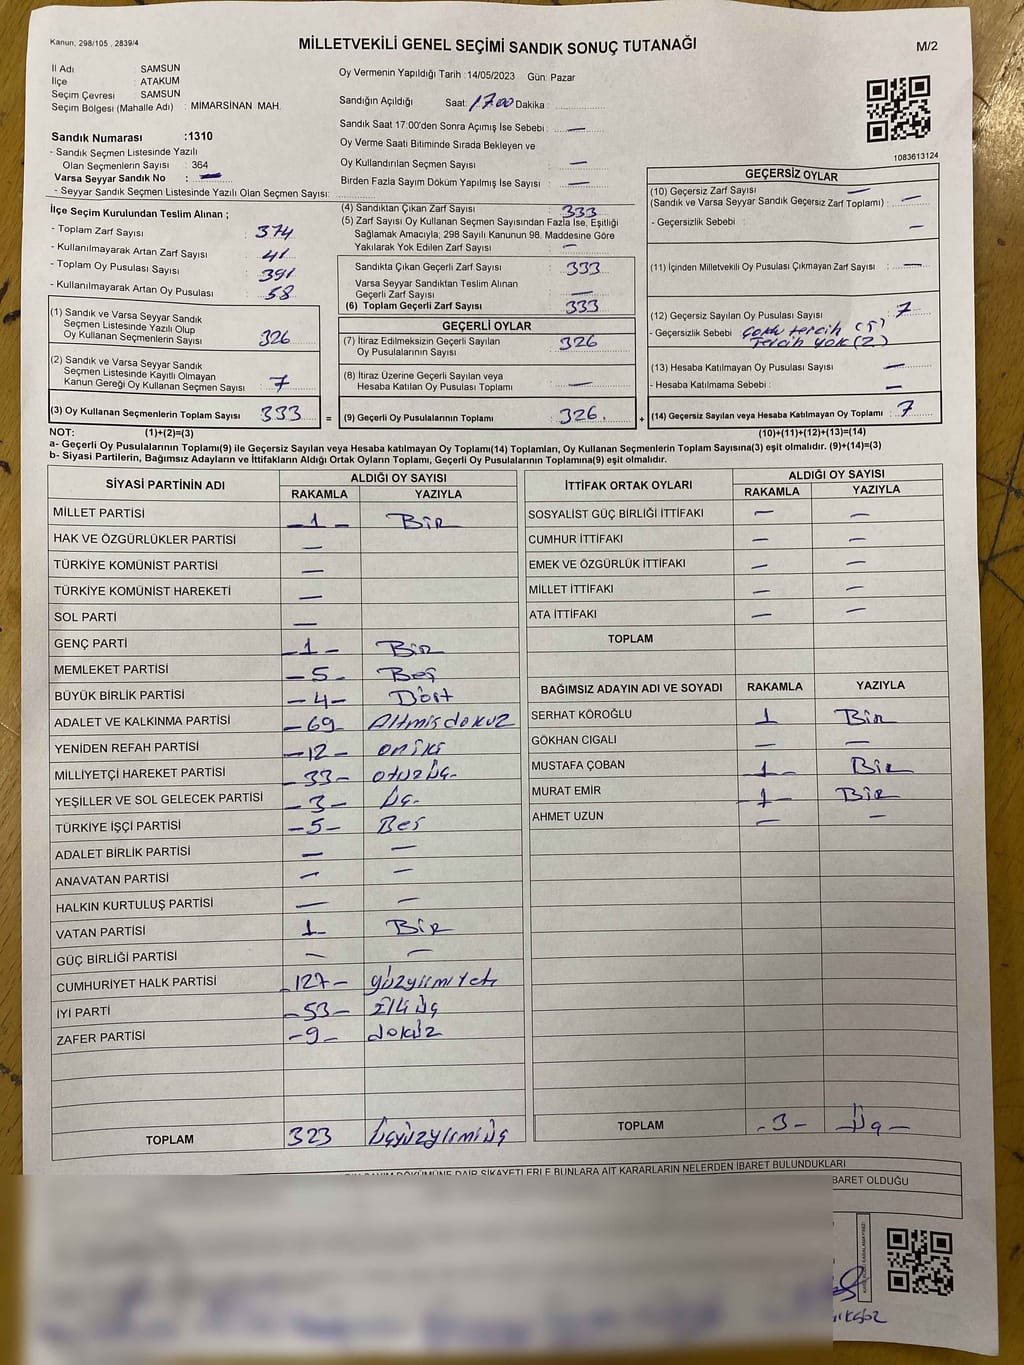 Kanun, 298/105 , 2839/4
MİLLETVEKİLİ GENEL SEÇİMİ SANDIK SONUÇ TUTANAĞI
M/2
İl Adı SAMSUN
İlçe ATAKUM
Seçim Çevresi SAMSUN
Seçim Bölgesi (Mahalle Adı) : MİMARSİNAN MAH.
Sandık Numarası :1310
- Sandık Seçmen Listesinde Yazılı
Olan Seçmenlerin Sayısı : 364
Varsa Seyyar Sandık No : —
- Seyyar Sandık Seçmen Listesinde Yazılı Olan Seçmen Sayısı:
Oy Vermenin Yapıldığı Tarih :14/05/2023 Gün: Pazar
Sandığın Açıldığı Saat: 1700 Dakika :
Sandık Saat 17:00'den Sonra Açımış İse Sebebi : —
Oy Verme Saati Bitiminde Sırada Bekleyen ve
Oy Kullandırılan Seçmen Sayısı : —
Birden Fazla Sayım Döküm Yapılmış İse Sayısı : —
1083613124
İlçe Seçim Kurulundan Teslim Alınan ;
- Toplam Zarf Sayısı : 374
- Kullanılmayarak Artan Zarf Sayısı : 41
- Toplam Oy Pusulası Sayısı : 391
- Kullanılmayarak Artan Oy Pusulası : 58
(1) Sandık ve Varsa Seyyar Sandık
Seçmen Listesinde Yazılı Olup
Oy Kullanan Seçmenlerin Sayısı : 326
(2) Sandık ve Varsa Seyyar Sandık
Seçmen Listesinde Kayıtlı Olmayan
Kanun Gereği Oy Kullanan Seçmen Sayısı : 7
(3) Oy Kullanan Seçmenlerin Toplam Sayısı : 333 =
(4) Sandıktan Çıkan Zarf Sayısı : 333
(5) Zarf Sayısı Oy Kullanan Seçmen Sayısından Fazla İse, Eşitliği
Sağlamak Amacıyla; 298 Sayılı Kanunun 98. Maddesine Göre
Yakılarak Yok Edilen Zarf Sayısı : —
Sandıkta Çıkan Geçerli Zarf Sayısı : 333
Varsa Seyyar Sandıktan Teslim Alınan
Geçerli Zarf Sayısı : —
(6) Toplam Geçerli Zarf Sayısı : 333
GEÇERLİ OYLAR
(7) İtiraz Edilmeksizin Geçerli Sayılan
Oy Pusulalarının Sayısı : 326
(8) İtiraz Üzerine Geçerli Sayılan veya
Hesaba Katılan Oy Pusulası Toplamı : —
(9) Geçerli Oy Pusulalarının Toplamı : 326. +
GEÇERSİZ OYLAR
(10) Geçersiz Zarf Sayısı : —
(Sandık ve Varsa Seyyar Sandık Geçersiz Zarf Toplamı) : —
- Geçersizlik Sebebi : —
(11) İçinden Milletvekili Oy Pusulası Çıkmayan Zarf Sayısı : —
(12) Geçersiz Sayılan Oy Pusulası Sayısı : 7
- Geçersizlik Sebebi : Çoklu tercih (5)
Tercih yok (2)
(13) Hesaba Katılmayan Oy Pusulası Sayısı : —
- Hesaba Katılmama Sebebi : —
(14) Geçersiz Sayılan veya Hesaba Katılmayan Oy Toplamı : 7
NOT: (1)+(2)=(3) (10)+(11)+(12)+(13)=(14)
a- Geçerli Oy Pusulalarının Toplamı(9) ile Geçersiz Sayılan veya Hesaba katılmayan Oy Toplamı(14) Toplamları, Oy Kullanan Seçmenlerin Toplam Sayısına(3) eşit olmalıdır. (9)+(14)=(3)
b- Siyasi Partilerin, Bağımsız Adayların ve İttifakların Aldığı Ortak Oyların Toplamı, Geçerli Oy Pusulalarının Toplamına(9) eşit olmalıdır.
SİYASİ PARTİNİN ADI ALDIĞI OY SAYISI
RAKAMLA YAZIYLA
MİLLET PARTİSİ — 1 — Bir
HAK VE ÖZGÜRLÜKLER PARTİSİ —
TÜRKİYE KOMÜNİST PARTİSİ —
TÜRKİYE KOMÜNİST HAREKETİ —
SOL PARTİ —
GENÇ PARTİ — 1 — Bir
MEMLEKET PARTİSİ — 5 — Beş
BÜYÜK BİRLİK PARTİSİ — 4 — Dört
ADALET VE KALKINMA PARTİSİ — 69 — Altmışdokuz
YENİDEN REFAH PARTİSİ — 12 — oniki
MİLLİYETÇİ HAREKET PARTİSİ — 33 — otuzüç
YEŞİLLER VE SOL GELECEK PARTİSİ — 3 — Üç
TÜRKİYE İŞÇİ PARTİSİ — 5 — Beş
ADALET BİRLİK PARTİSİ — —
ANAVATAN PARTİSİ — —
HALKIN KURTULUŞ PARTİSİ — —
VATAN PARTİSİ 1 — Bir
GÜÇ BİRLİĞİ PARTİSİ — —
CUMHURİYET HALK PARTİSİ — 127 — yüzyirmiyedi
İYİ PARTİ — 53 — Elliüç
ZAFER PARTİSİ — 9 — dokuz
TOPLAM 323 Üçyüzyirmiüç
İTTİFAK ORTAK OYLARI ALDIĞI OY SAYISI
RAKAMLA YAZIYLA
SOSYALİST GÜÇ BİRLİĞİ İTTİFAKI — —
CUMHUR İTTİFAKI — —
EMEK VE ÖZGÜRLÜK İTTİFAKI — —
MİLLET İTTİFAKI — —
ATA İTTİFAKI — —
TOPLAM
BAĞIMSIZ ADAYIN ADI VE SOYADI RAKAMLA YAZIYLA
SERHAT KÖROĞLU 1 Bir
GÖKHAN CIGALI — —
MUSTAFA ÇOBAN 1 Bir
MURAT EMİR — 1 — Bir
AHMET UZUN — —
TOPLAM — 3 — Üç —
SAYIM DÖKÜMÜNE DAİR ŞİKAYETLERLE BUNLARA AİT KARARLARIN NELERDEN İBARET BULUNDUKLARI
BARET OLDUĞU